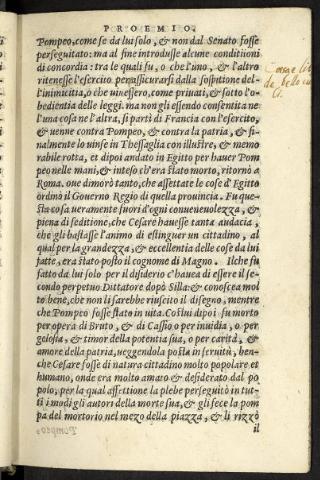 PROEMIO.
Pompeo, come se da lui solo, & non dal Senato fosse
perseguitato: ma al fine introdusse alcune conditioni
di concordia: tra le quali fu, o che l'uno, & l'altro
ritenesse l'esercito per assicurarsi dalla sospitione del-
l'inimicitia, o che uivessero, come priuati, & sotto l'o-
bedientia delle leggi. ma non gli essendo consentita ne
l'una cosa ne l'altra, si partì di Francia con l'esercito,
& uenne contra Pompeo, & contra la patria, & fi-
nalmente lo uinse in Thessaglia con illustre, & memo
rabile rotta, et dipoi andato in Egitto per hauer Pom
peo nelle mani, & inteso ch'era stato morto, ritornò a
Roma. oue dimorò tanto, che assettate le cose d'Egitto
ordinò il Governo Regio di quella prouincia. Fu que-
sta cosa ueramente fuori d'ogni conueneuolezza, &
piena di seditione, che Cesare hauesse tanta audacia,
che gli bastasse l'animo di estinguer un cittadino, al
qual per la grandezza, & eccellentia delle cose da lui
fatte, era stato posto il cognome di Magno. Il che fu
fatto da lui solo per il disiderio c'hauea di essere il se-
condo perpetuo Dittatore dopò Silla: & conoscea mol
to bene, che non li sarebbe riuscito il disegno, mentre
che Pompeo fosse stato in uita. Costui dipoi fu morto
per opera di Bruto, & di Cassio o per inuidia, o per
gelosia, & timor della potentia sua, o per carità, &
amore della patria, ueggendola posta in seruitù, ben-
che Cesare fosse di natura cittadino molto popolare et
humano, onde era molto amato & desiderato dal po
polo, per la qual affettione la plebe perseguitò in tut-
ti i modi gli autori della morte sua, & gli fece la pom
pa del mortorio nel mezo della piazza, & li rizzò
il